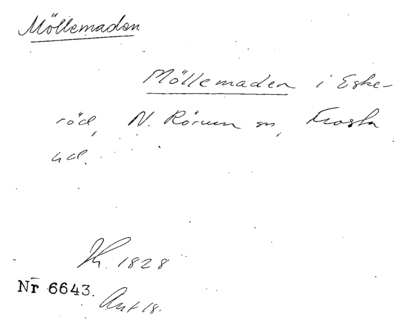 Möllemaden
Möllemaden i Eske-
röd, N. Rörum sn, Frosta
hd.
Kr. 1828
Nr 6643.
Ant 18.